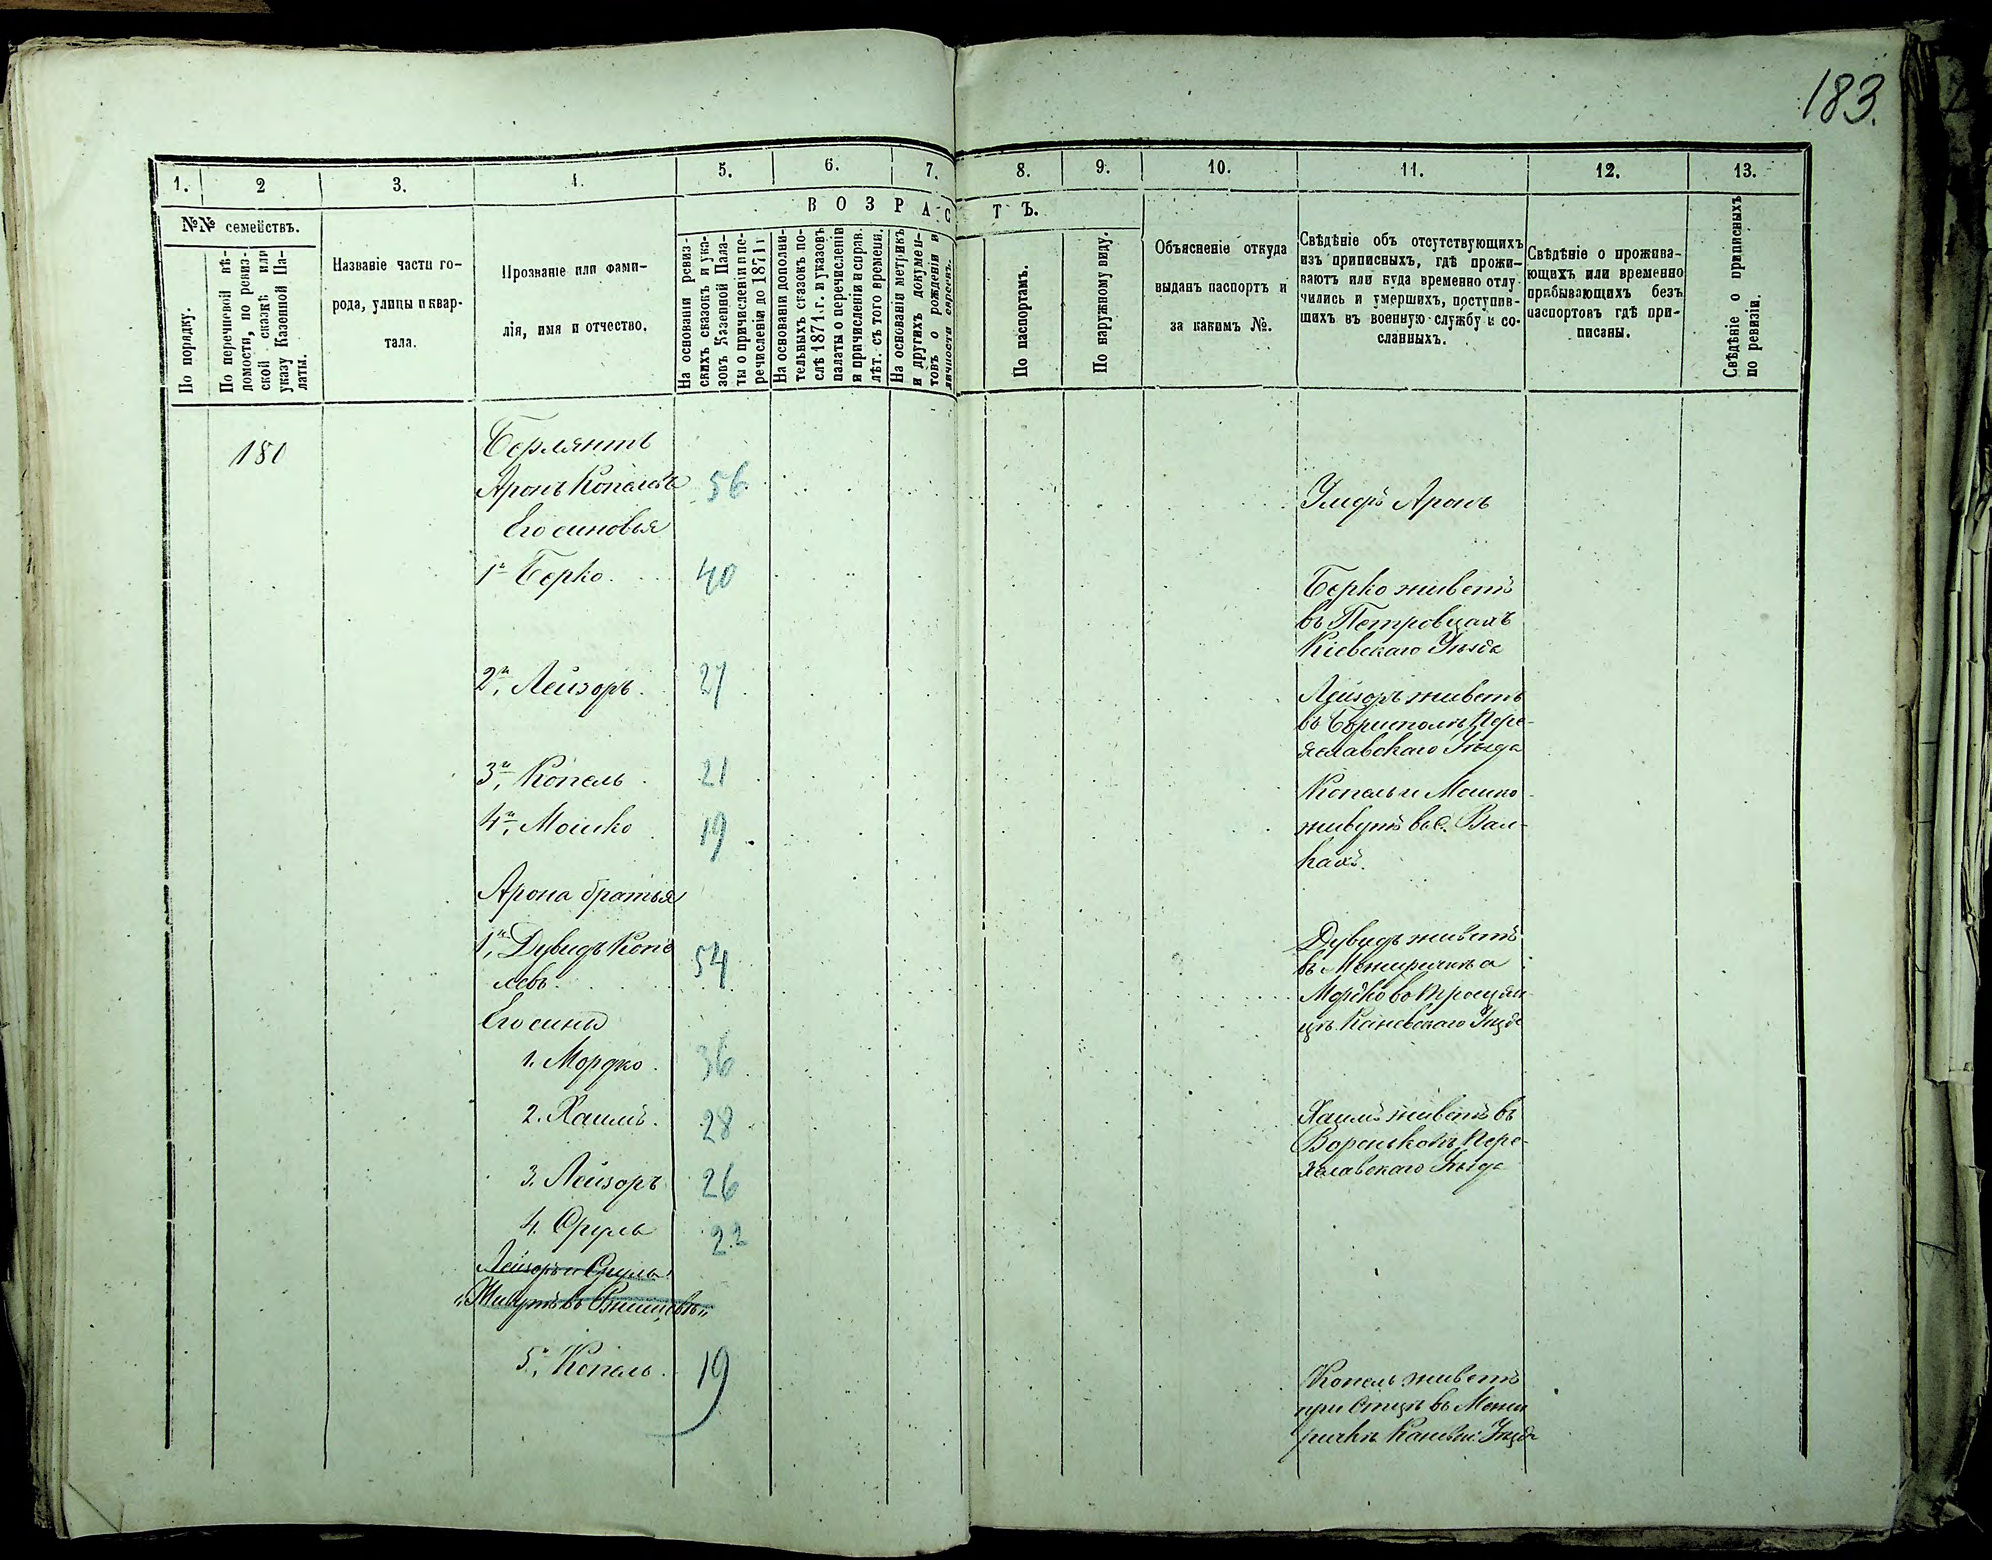 183.
1.
2
3.
4.
5.
6.
7.
8.
9.
10.
11.
12.
13.
№№ семействъ.
По порядку.
По перечневой вѣ-
домости, по ревиз-
ской сказкѣ или
указу Казенной Па-
латы.
Названіе части го-
рода, улицы и квар-
тала.
Прозваніе или фами-
лія, имя и отчество.
ВОЗРАСТЪ.
На основаніи ревиз-
скихъ сказокъ и ука-
зовъ Казенной Пала-
ты о причисленіи и пе-
речисленіи до 1871 г.
На основаніи дополни-
тельныхъ сказокъ по-
слѣ 1871 г. и указовъ
палаты о перечисленіи
и причисленіи и справ.
лѣт. съ того времени.
На основаніи метрикъ
и другихъ докумен-
товъ о рожденіи и
личности евреевъ.
По паспортамъ.
По наружному виду.
Объясненіе откуда
выданъ паспортъ и
за какимъ №.
Свѣдѣніе объ отсутствующихъ
изъ приписныхъ, гдѣ прожи-
ваютъ или куда временно отлу-
чились и умершихъ, поступив-
шихъ въ военную службу и со-
сланныхъ.
Свѣдѣніе о прожива-
ющихъ или временно
прибывающихъ безъ
паспортовъ гдѣ при-
писаны.
Свѣдѣніе о приписныхъ
по ревизіи.
180
Берлянтъ
Аронъ Копелевъ 56 Умеръ Аронъ
Его синовья
1й Берко 40 Берко живетъ
въ Петровцахъ
Кіевскаго Уѣзда
2й, Лейзоръ 27 Лейзоръ живетъ
въ Борисполѣ Пере-
яславскаго Уѣзда
3й, Копель 21 Копель и Мошко
4й, Мошко 19 живутъ въ с. Вал-
кахъ.
Арона братья
1й, Дувидъ Копе 54 Дувидъ живетъ
левъ въ Межиричкѣ а
Мордко во Процын-
цѣ Каневскаго Уѣзда
Его сины
1. Мордко 36
2. Хаимъ 28 Хаимъ живетъ въ
Вороньковѣ Пере-
яславскаго Уѣзда
3. Лейзоръ 26
4. Сруль 22
Лейзоръ и Сруль
"Живутъ въ Ржищевѣ"
5й, Копель 19 Копель живетъ
при Отцѣ въ Межи
ричкѣ Каневск: Уѣзда